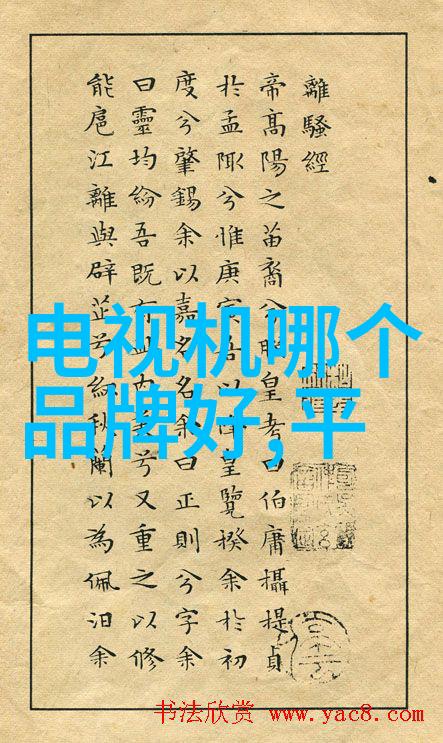 離騷經
帝高陽之苗裔兮朕皇考曰伯庸攝提貞
於孟陬兮惟庚寅吾以降皇覽揆余於初
度兮肇錫余以嘉名名余曰正則兮字余
曰靈均紛吾既有此內美兮又重之以修
能扈江離與辟芷兮紉秋蘭以為佩汨余
电视机哪个
品牌好,平
书法欣赏 www.yac8.com